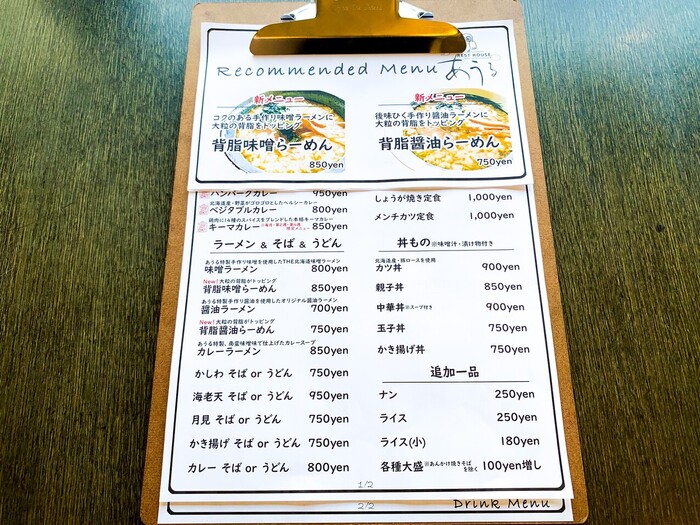 BEST HOUSE
Recommended Menu あうる
新メニュー
コクのある手作り味噌ラーメンに
大粒の背脂をトッピング
背脂味噌らーめん
850yen
新メニュー
後味ひく手作り醤油ラーメンに
大粒の背脂をトッピング
背脂醤油らーめん
750yen
ハンバーグカレー 950yen
北海道産・野菜がゴロゴロとしたヘルシーカレー
ベジタブルカレー 800yen
鶏肉に14種のスパイスをブレンドした本格キーマカレー
キーマカレー 850yen
ラーメン & そば & うどん
あうる特製手作り味噌を使用したTHE北海道味噌ラーメン
味噌ラーメン 800yen
New!大粒の背脂がトッピング
背脂味噌らーめん 850yen
あうる特製手作り醤油を使用したオリジナル醤油ラーメン
醤油ラーメン 700yen
New!大粒の背脂がトッピング
背脂醤油らーめん 750yen
あうる特製、南蛮味噌味で仕上げたカレースープ
カレーラーメン 850yen
かしわ そば or うどん 750yen
海老天 そば or うどん 950yen
月見 そば or うどん 750yen
かき揚げ そば or うどん 750yen
カレー そば or うどん 800yen
しょうが焼き定食 1,000yen
メンチカツ定食 1,000yen
丼もの ※味噌汁・漬け物付き
北海道産・豚ロースを使用
カツ丼 900yen
親子丼 850yen
中華丼 ※スープ付き 900yen
玉子丼 750yen
かき揚げ丼 750yen
追加一品
ナン 250yen
ライス 250yen
ライス(小) 180yen
各種大盛 ※あんかけ焼きそばを除く 100yen増し
1/2
2/2
Drink Menu